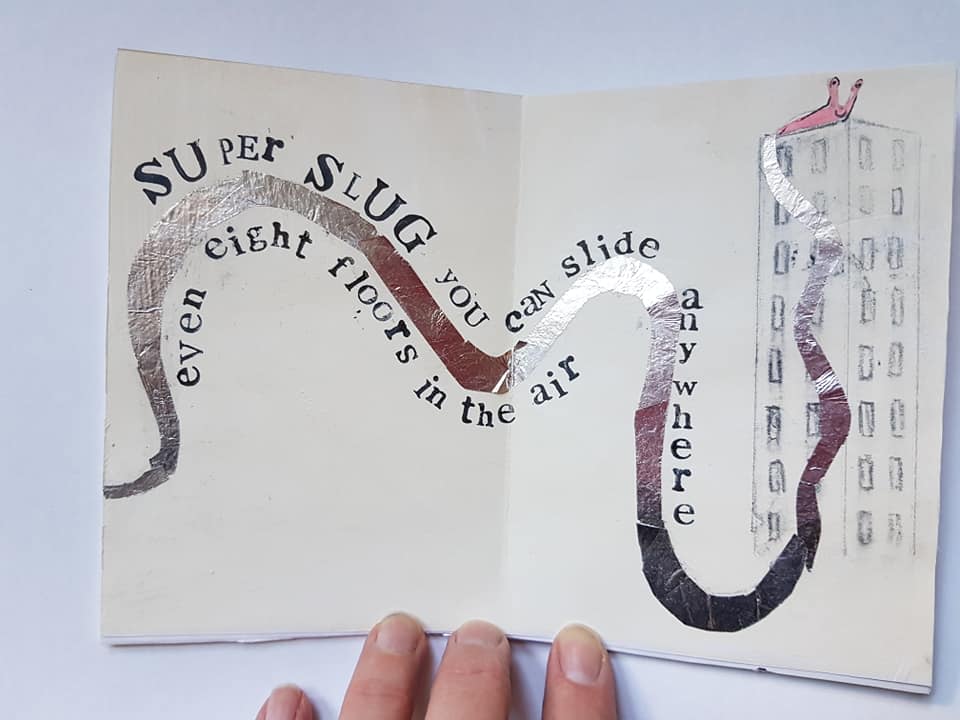 SUPER SLUG you can slide anywhere
even eight floors in the air